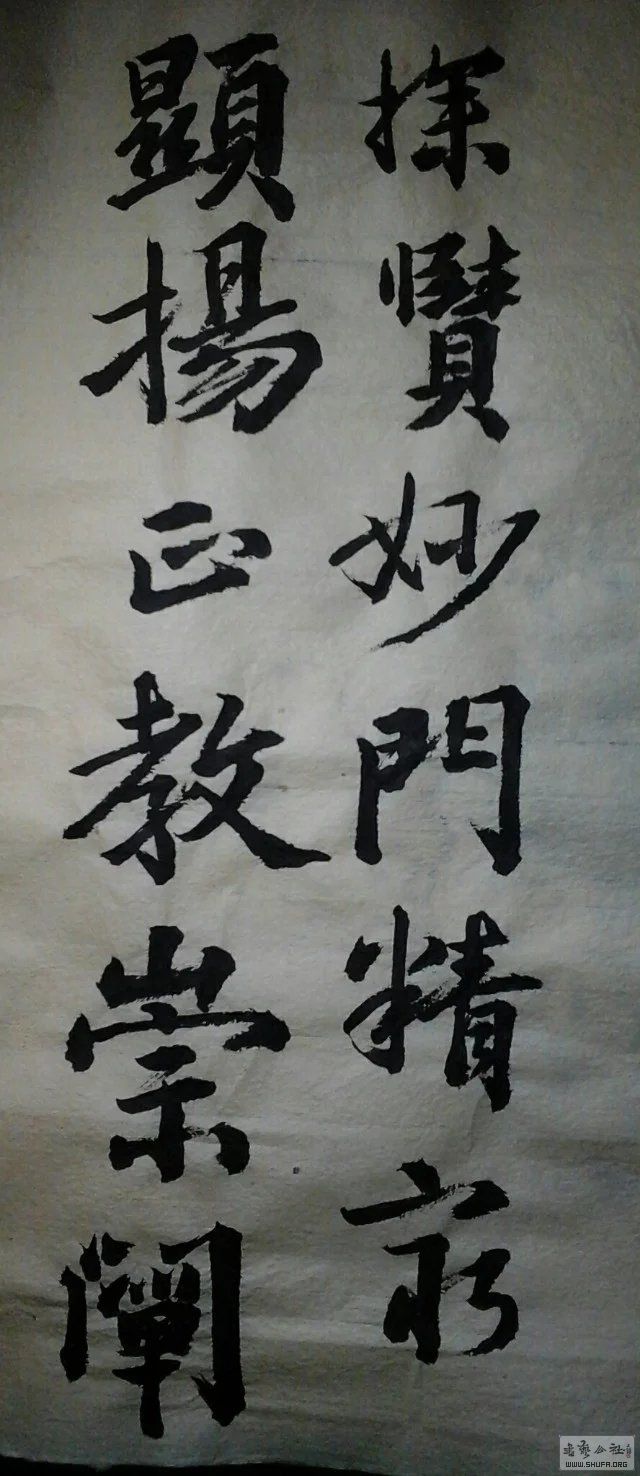 探賾妙門精窮
顯揚正教崇闡
書藝公社
WWW.SHUFA.ORG